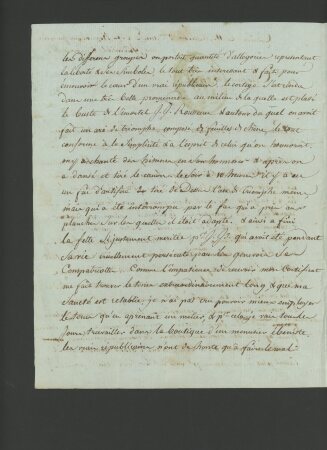 les differens grouppes on portoit quantité d'allegorie représentent
la liberté & ses simboles le tout très interessant & fait pour
emouvoir le cœur d'un vrai républicain le cortege s'est rendu
dans une très belle promenade au milieu de la quelle est placé
le buste de l'imortel J. J. Rousseau & autour du quel on avoit
fait un arc de triomphe composé de feuilles de chêne le tout
conforme à la simplicité & à l'esprit de celui qu'on honnoroit,
on y a chanté des himnes en son honneur & après on
a dansé et tiré le canon le soir à 10 heures il y a eu
un feu d'artifice tiré de l'arc de triomphe même
mais qui a été interompue par le feu qui a pris aux
planches sur les quelles il était adapté. & ainsi a fini
la fette si justement meritée pr J. J. qui avoit été pendant
sa vie cruellement persecuté par les genevois ses
compatriottes. Comme l'impatience de recevoir mon certificat
me fait trouver le tems extraordinairement long & que ma
santé est retablie je n'ai pas cru pouvoir mieux employer
le tems qu'en aprenant un métier, & pr cela je vais tous les
jours travailler dans la boutique d'un menuisier ébeniste
les vrais républicains n'ont de honte qu'à faire le mal